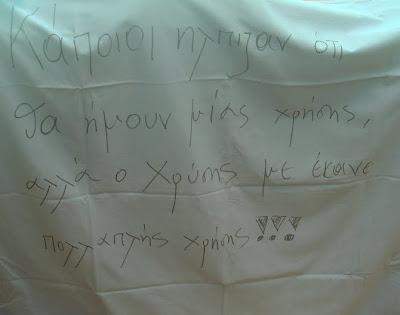 Κάποιοι ήλπιζαν ότι
θα ήμουν μίας χρήσης,
αλλά ο Χρύσης με έκανε
πολλαπλής χρήσης!!!